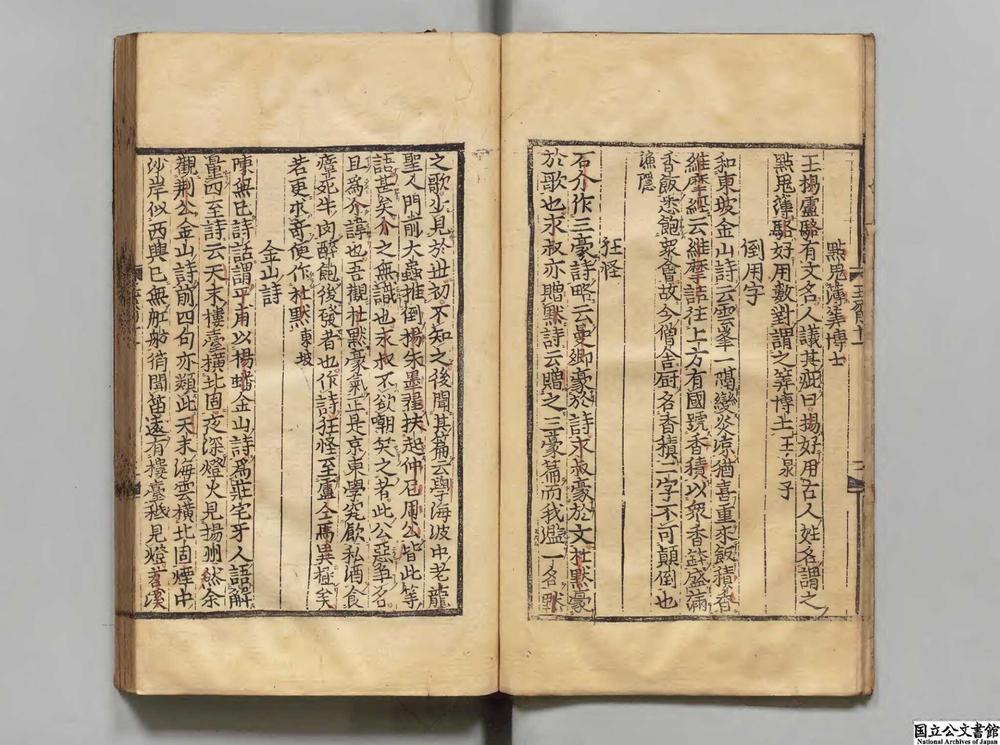 點鬼簿筭博士
王楊盧駱有文名人議其疵曰楊好用古人姓名謂之
點鬼簿駱好用數對謂之筭博士王泉子
倒用字
和東坡金山詩云雲峯一隔變炎凉猶喜重來飯積香
維摩經云維摩詰往上方有國號香積以衆香鉢盛滿
香飯悉飽衆會故今僧舍厨名香積二字不可顛倒也
漁隱
狂怪
石介作三豪詩略云曼卿豪於詩永叔豪於文杜默豪
於歌也永叔亦贈默詩云贈之三豪篇而我濫一名默
之歌少見於世初不知之後聞其篇云學海波中老龍
聖人門前大蟲推倒楊朱墨翟扶起仲尼周公皆此等
語甚矣介之無識也永叔不欲嘲笑之者此公惡爭名
且爲介諱也吾觀杜默豪氣正是京東學究飮私酒食
瘴死牛肉醉飽後發者也作詩狂怪至盧仝馬異極矣
若更求奇便作杜默東坡
金山詩
陳無已詩話謂平甫以楊蟠金山詩爲莊宅牙人語解
量四至詩云天末樓臺橫北固夜深燈火見揚州然余
觀荆公金山詩前四句亦類此天末海雲橫北固煙中
沙岸似西興已無舡舫猶聞笛遠有樓臺秪見燈苕溪
国立公文書館
National Archives of Japan